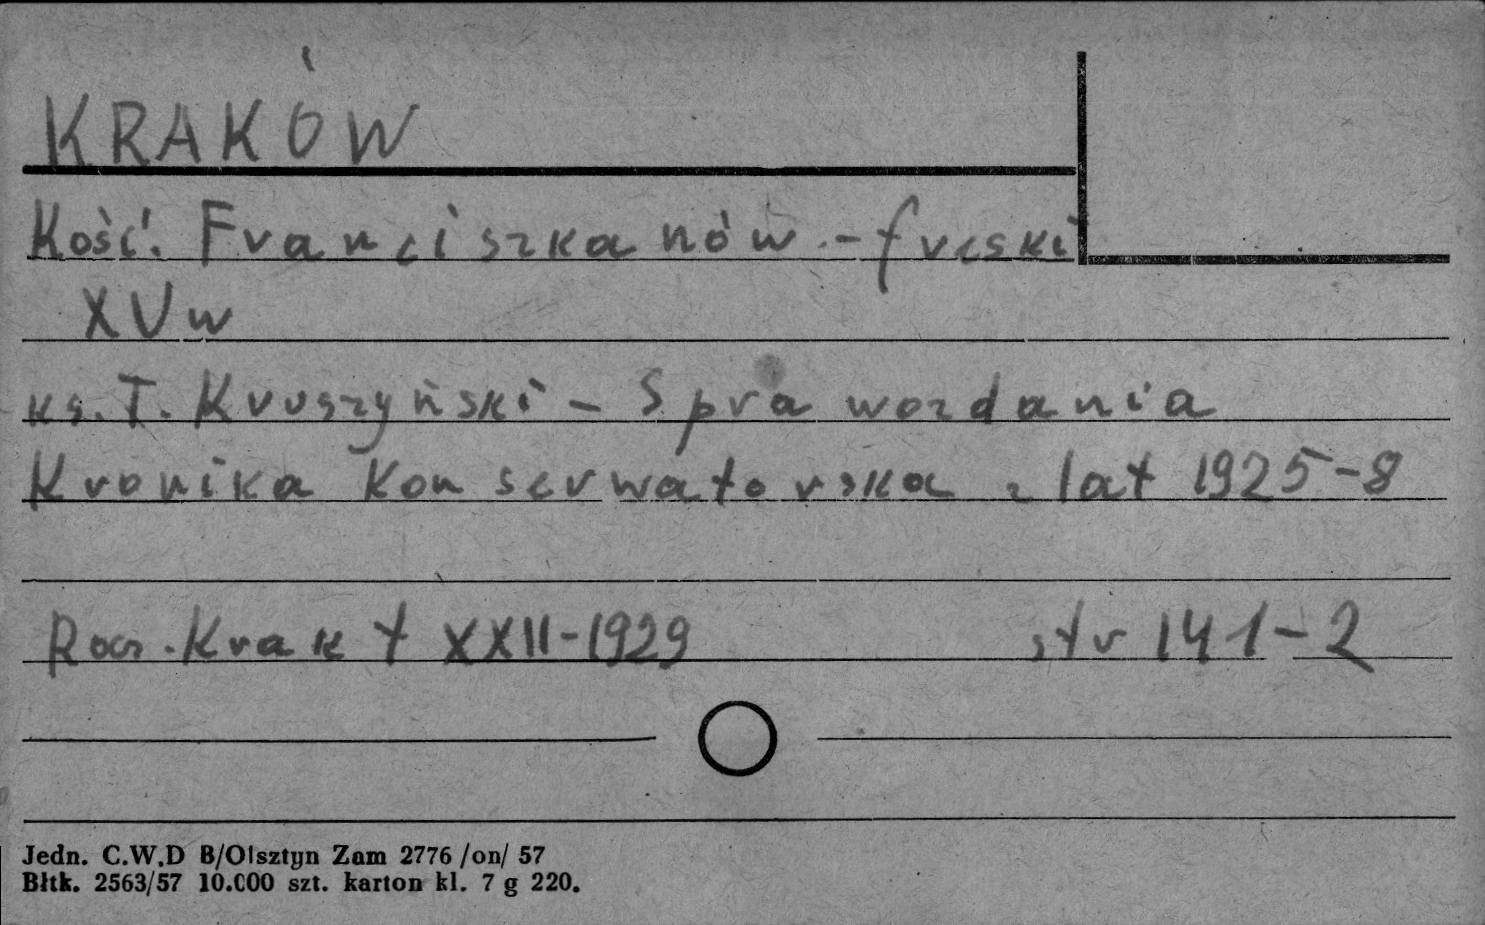 KRAKÓW
Kość. Franciszkanów - freski
XV w
ks. T. Kruszyński - Sprawozdania
Kronika Konserwatorska z lat 1925-8
Rocz. Krak t XXII-1929 str 141-2
Jedn. C.W.D B/Olsztyn Zam 2776 /on/ 57
Błtk. 2563/57 10.000 szt. karton kl. 7 g 220.